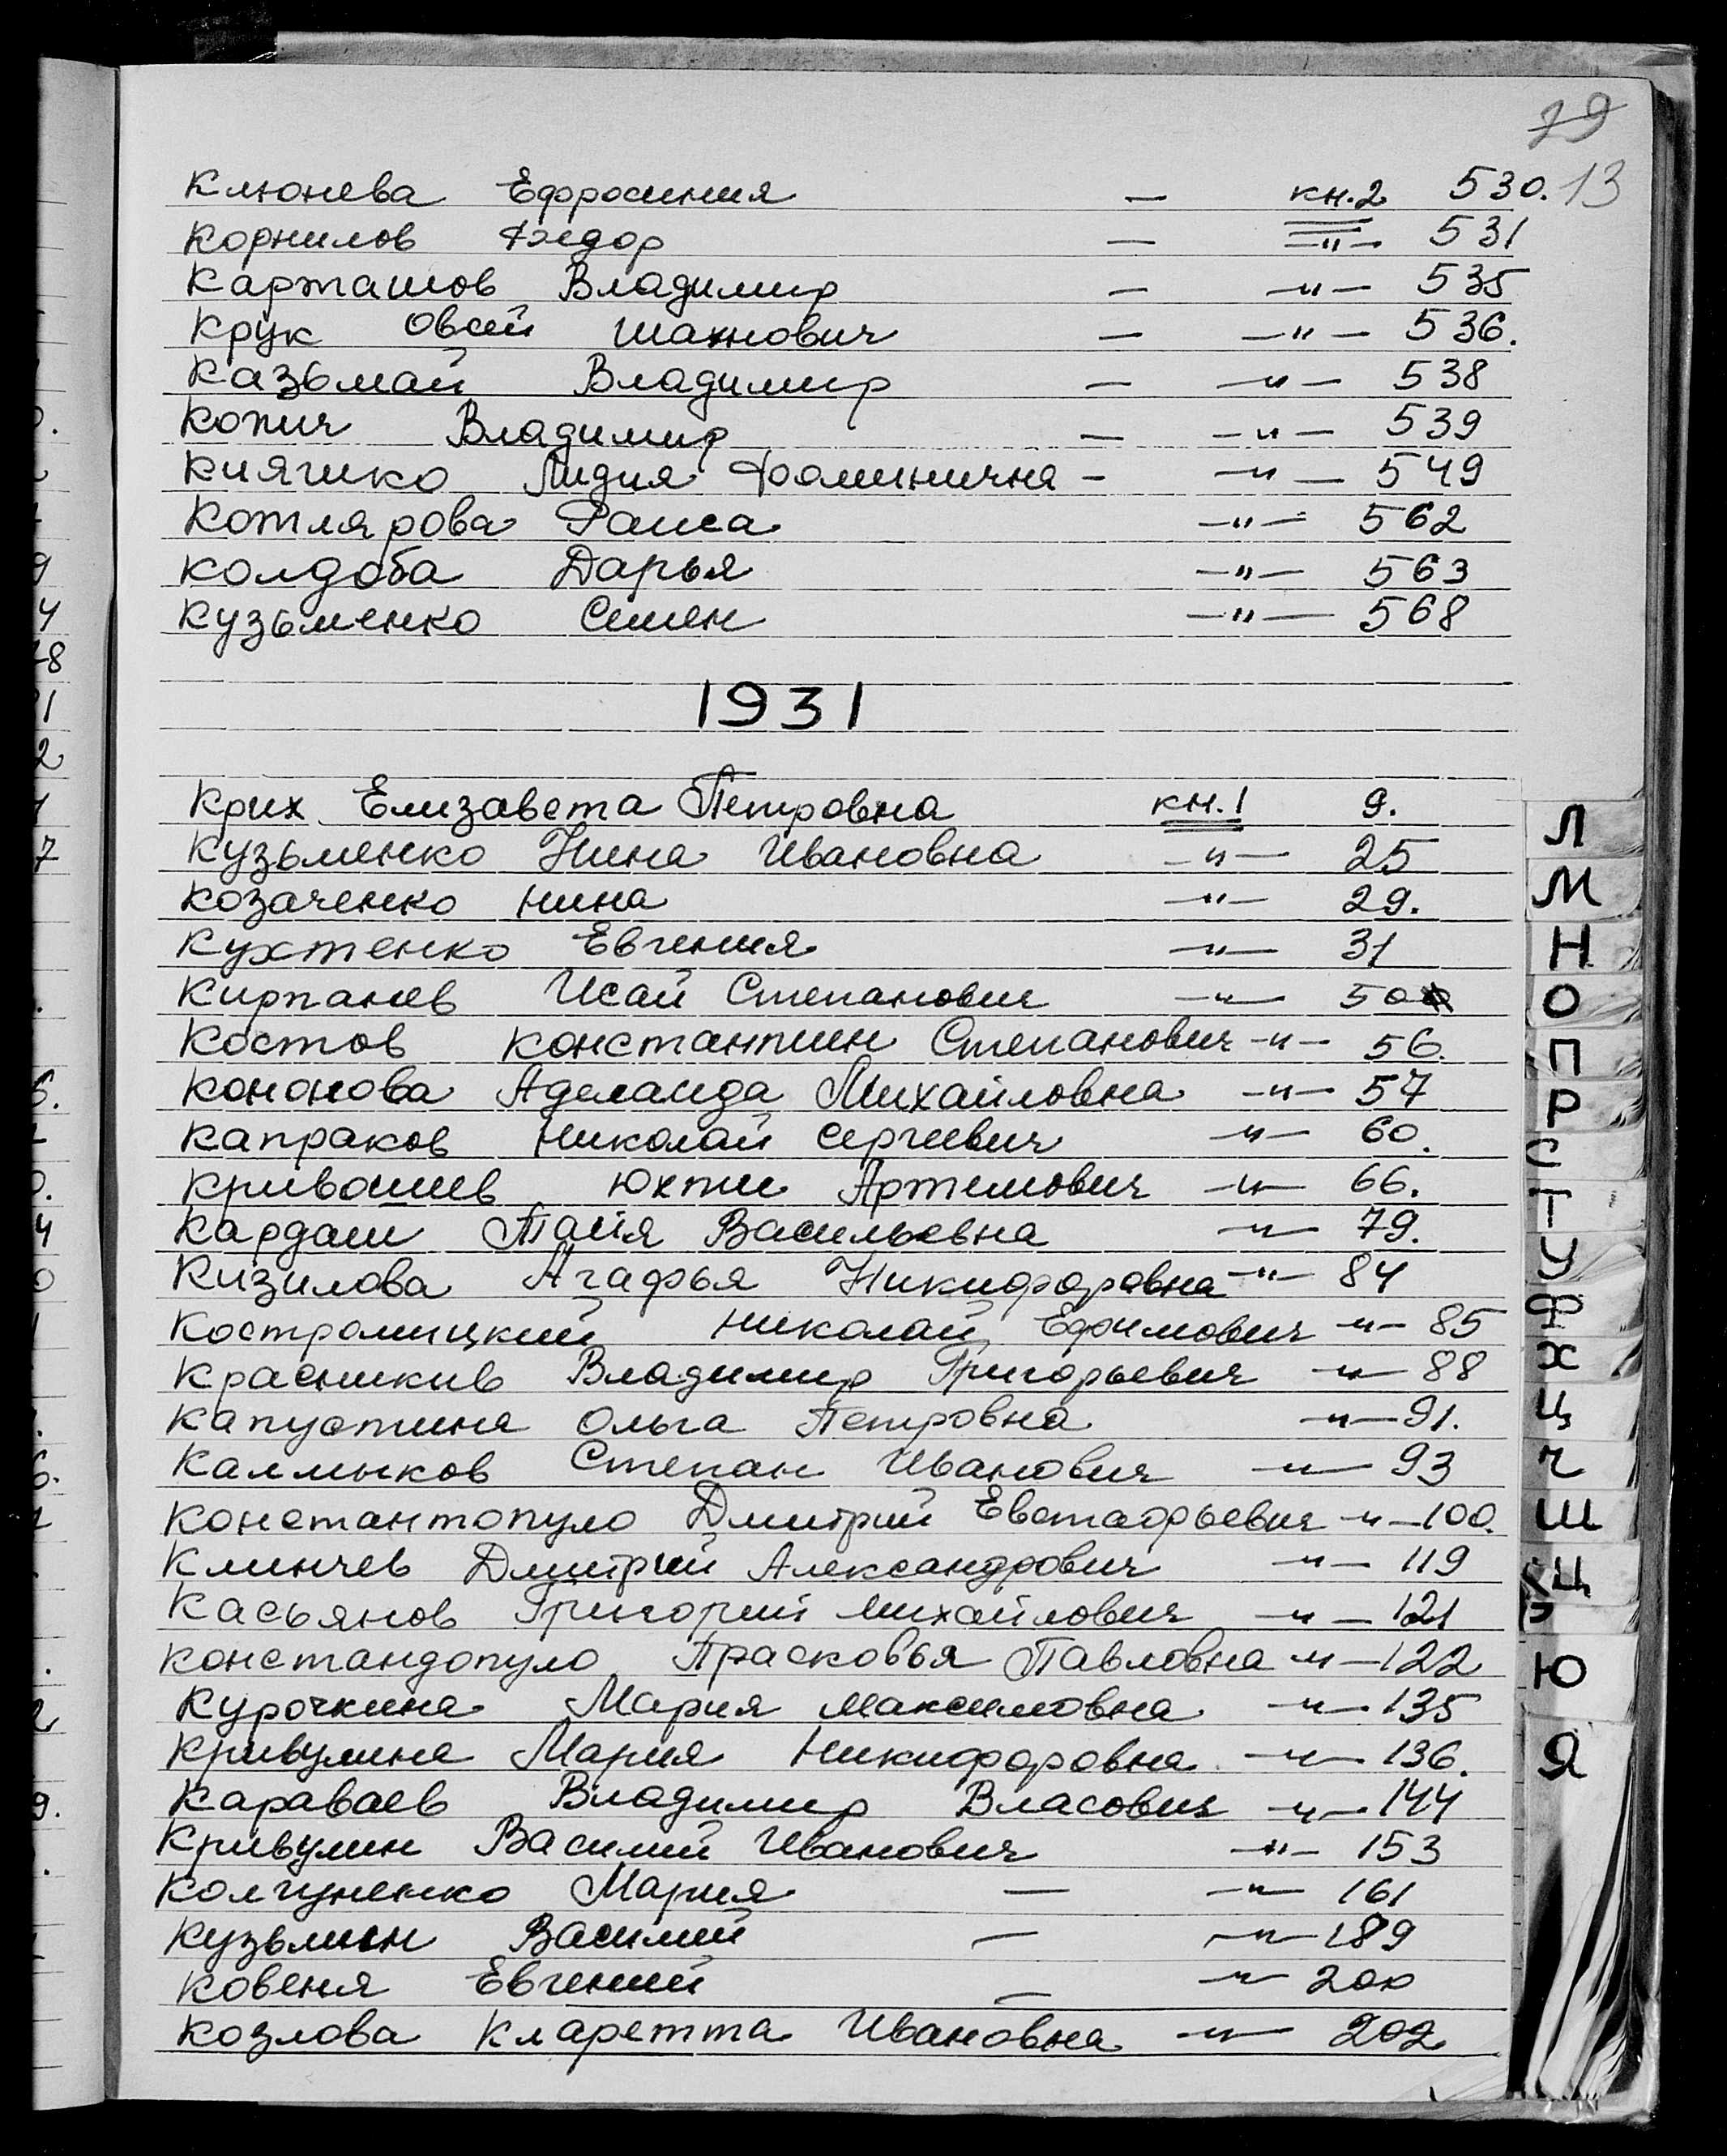 79
Клюнева Ефросиния — кн.2 530. 13
Корнилов Федор — —"— 531
Карташов Владимир — —"— 535
Крук Овсей Шахнович — —"— 536.
Казьмай Владимир — —"— 538
Копич Владимир — —"— 539
Киячко Лидия Фоминична — —"— 549
Котлярова Раиса —"— 562
Колдоба Дарья —"— 563
Кузьменко Семен —"— 568
1931
Крих Елизавета Петровна кн.1 9.
Кузьменко Нина Ивановна —"— 25
Козаченко Нина —"— 29.
Кухтенко Евгения —"— 31
Кирпанев Исай Степанович —"— 50
Костов Константин Степанович —"— 56.
Кононова Аделаида Михайловна —"— 57
Капраков Николай Сергеевич —"— 60.
Кривошиев Юхти Артемович —"— 66.
Кардаш Таия Васильевна —"— 79.
Кизилова Агафья Никифоровна —"— 84
Костромицкий Николай Ефимович —"— 85
Красникив Владимир Григорьевич —"— 88
Капустина Ольга Петровна —"— 91.
Калмыков Степан Иванович —"— 93
Константопуло Дмитрий Евстафьевич —"— 100.
Клинчев Дмитрий Александрович —"— 119
Касьянов Григорий Михайлович —"— 121
Констандопуло Прасковья Павловна —"— 122
Курочкина Мария Максимовна —"— 135
Кривулина Мария Никифоровна —"— 136.
Караваев Владимир Власович —"— 144
Кривулин Василий Иванович —"— 153
Колгуненко Мария — —"— 161
Кузьмин Василий — —"— 189
Ковеня Евгений — —"— 200
Козлова Кларетта Ивановна —"— 202
Л
М
Н
О
П
Р
С
Т
У
Ф
Х
Ц
Ч
Ш
Щ
Э
Ю
Я